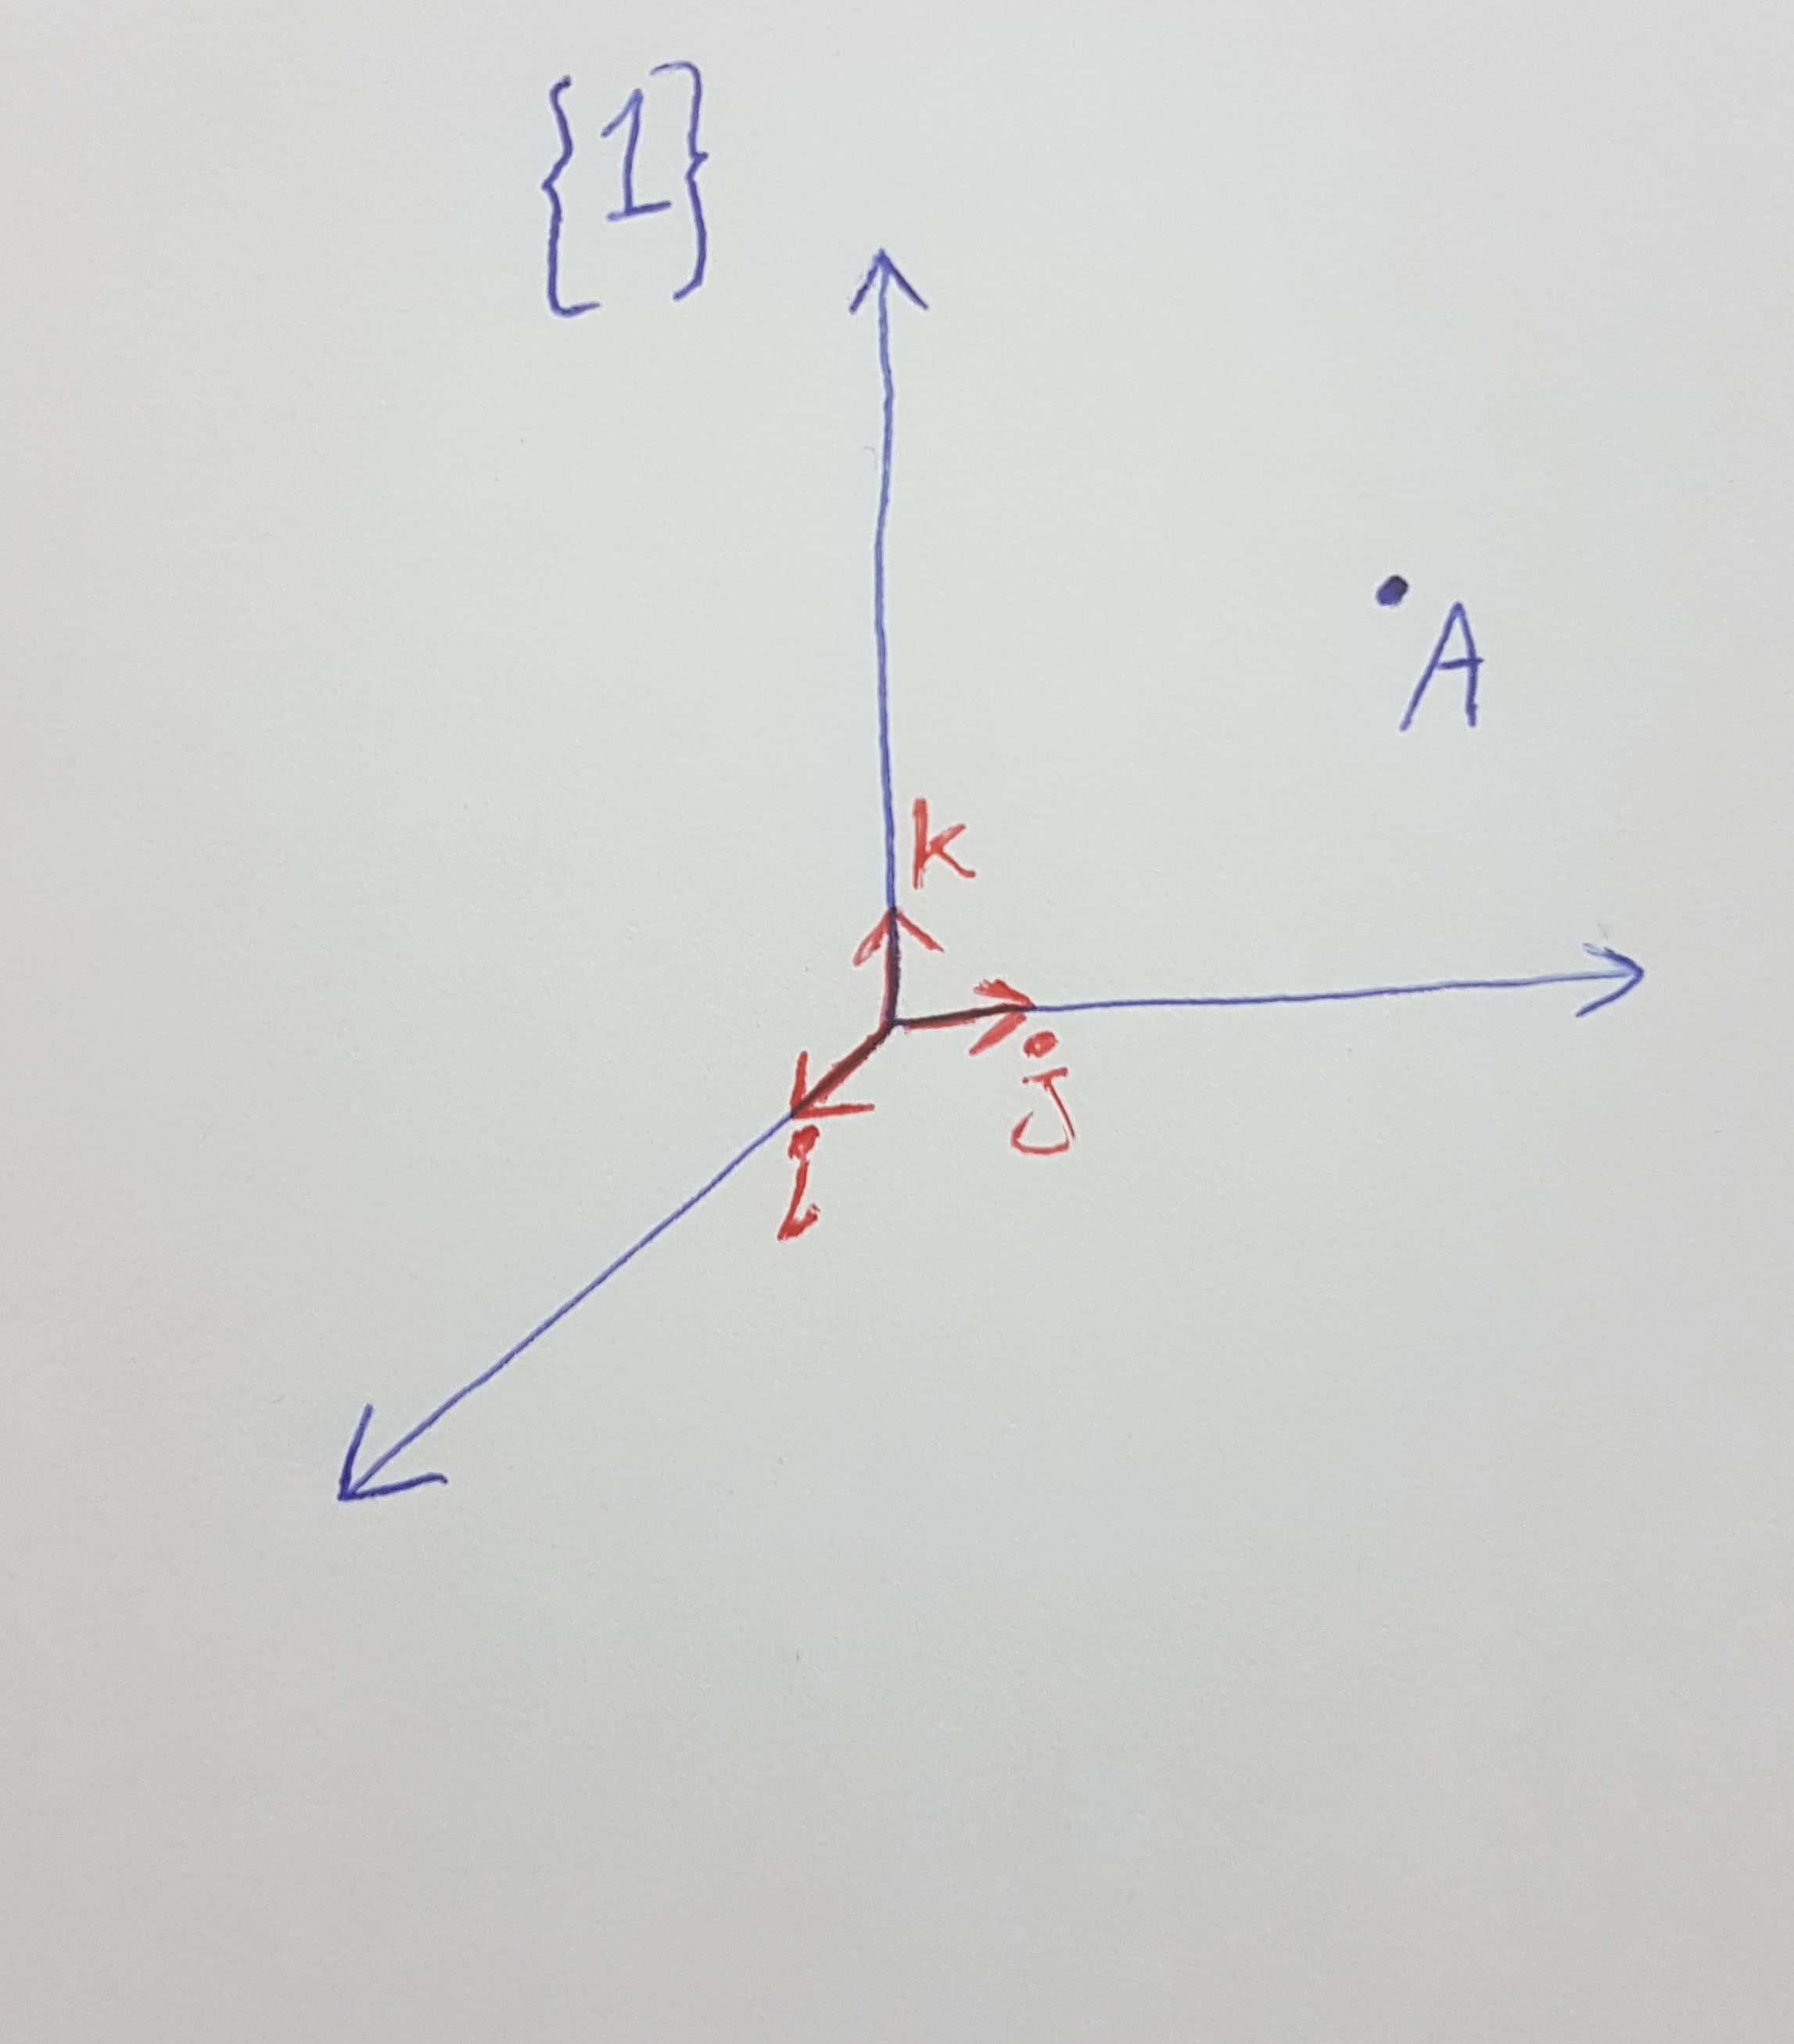 {1}
A
k
j
i